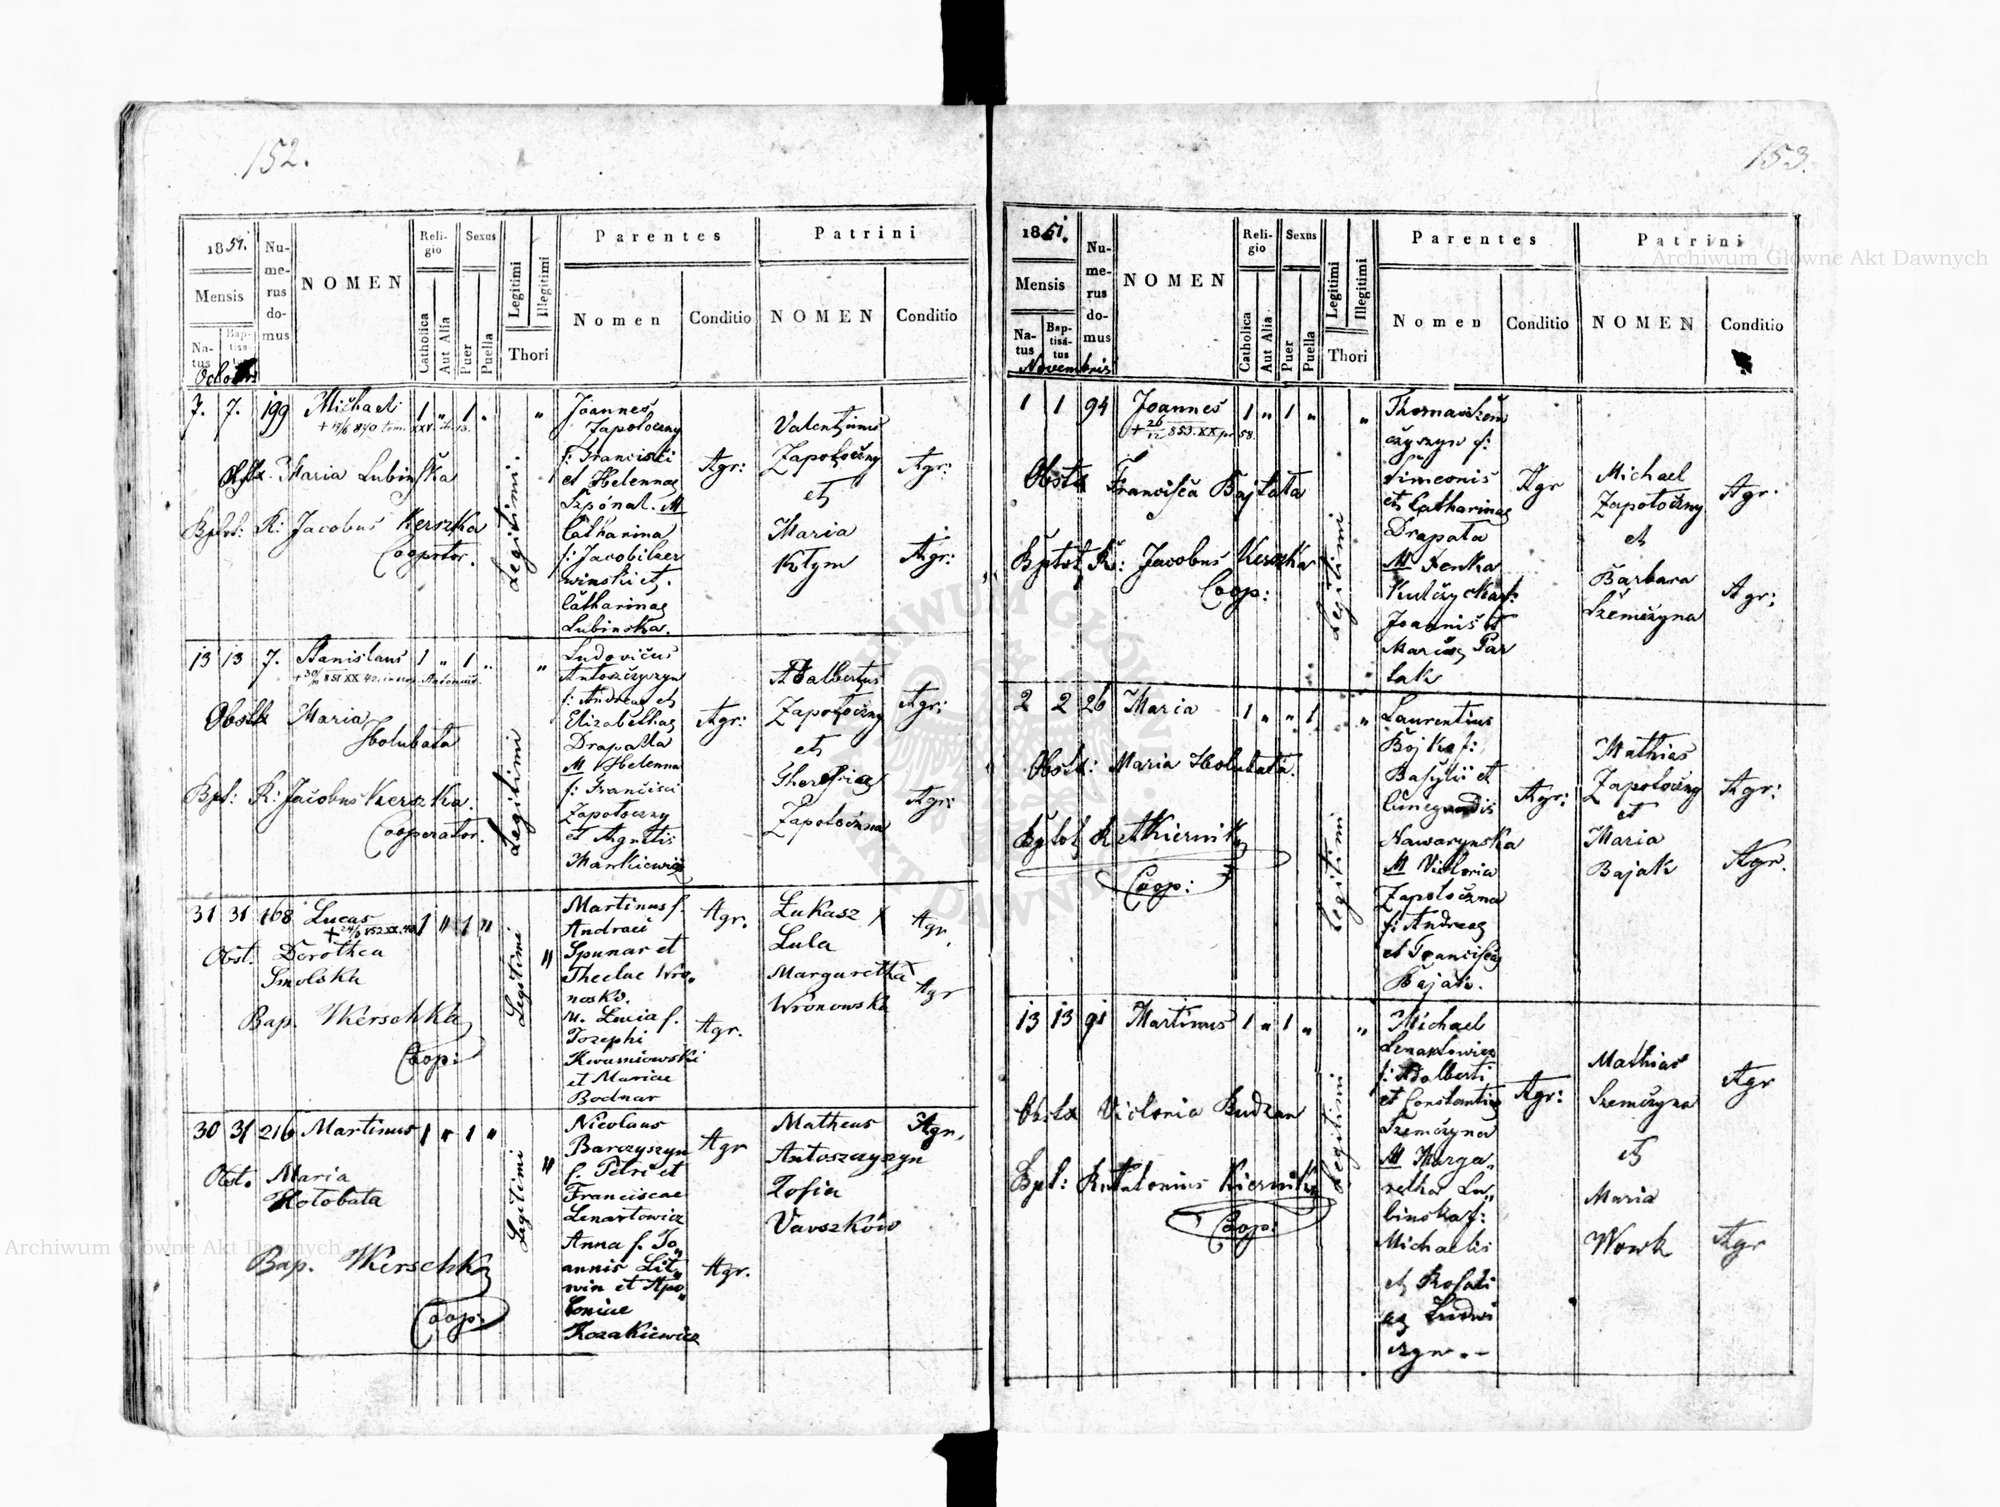 152.
1851.
Mensis
Na-
tus
Bap-
tisa-
tus
Octobris
Nu-
me-
rus
do-
mus
NOMEN
Reli-
gio
Catholica
Aut Alia
Sexus
Puer
Puella
Legitimi
Illegitimi
Thori
Parentes
Nomen
Conditio
Patrini
NOMEN
Conditio
7. 7. 199 Michael 1 " 1 " "
Obstx. Maria Lubinska
Bptst: R: Jacobus Kerszka
Cooprtor.
Legitimi.
Joannes
Zapotoczny
f: Francisci
et Helennae
Szpónal. M
Catharina
f: Jacobi
winski et
Catharinae
Lubinska.
Agr:
Valentinus
Zapotoczny
et
Maria
Kotym
Agr:
Agr:
13 13 7. Stanislaus 1 " 1 " "
Obstx Maria
Holubata
Bpt: R: Jacobus Kerszka.
Cooperator.
Legitimi
Ludovicus
Antoszczyszyn
f: Andreae et
Elizabethae
Drapalla
M Helenna
f: Francisci
Zapotoczny
et Agnetis
Markiewicz
Agr:
Adalbertus
Zapotoczny
et
Theresia
Zapotoczna
Agr:
Agr:
31 31 168 Lucas 1 " 1 "
Obst. Dorothea
Smolska
Bap. Kerschka
Coop:
Legitimi "
Martinus f.
Andraei
Spunar et
Theclae Wro-
noski.
M. Lucia f.
Jozephi
Kwasniowski
et Mariae
Bodnar
Agr.
Agr.
Lukasz X
Lula
Margaretha X
Wronowska
Agr.
Agr
30 31 216 Martinus 1 " 1 "
Obst. Maria
Holobata
Bap. Kerschka
Coop:
Legitimi "
Nicolaus
Barczyszyn
f. Petri et
Franciscae
Lenartowicz
Anna f. Jo-
annis Lit-
win et Apo-
loniae
Kozakiewicz
Agr
Agr.
Matheus
Antoszczyszyn
Zofia
Vavszków
Agr.
153.
1851.
Mensis
Na-
tus
Bap-
tisa-
tus
Novembris
Nu-
me-
rus
do-
mus
NOMEN
Reli-
gio
Catholica
Aut Alia
Sexus
Puer
Puella
Legitimi
Illegitimi
Thori
Parentes
Nomen
Conditio
Patrini
NOMEN
Conditio
1 1 94 Joannes 1 " 1 " "
Obstx Francisca Bajtata
Bptst R: Jacobus Kerszka
Coop:
Legitimi
Thomas
czyszyn f:
Simeonis
et Catharinae
Drapata
M Fenka
Joannis et
Mariae Par
tak
Agr
Michael
Zapotoczny
et
Barbara
Szemczyna
Agr.
Agr:
2 2 26 Maria 1 " " 1 "
Obstx: Maria Holubata.
Bptst R A Kiernik
Coop:
Legitimi
Laurentius
Bojko f:
Basylii et
Cunegundis
Nawarynska
M Victoria
Zapotoczna
f: Andreae
et Franciscae
Bajak.
Agr:
Mathias
Zapotoczny
et
Maria
Bajak
Agr:
Agr.
13 13 91 Martinus 1 " 1 " "
Obstx Victoria Budzan
Bpt: R Antonius Kiernik
Coop:
Legitimi
Michael
Lenartowicz
f: Adalberti
et Constantiae
Szemczyna
M Marga-
retha Lu-
binska f:
Michaelis
et Rosali
ae Ludwi
szyn.-
Agr:
Mathias
Szemczyna
et
Maria
Wowk
Agr
Agr
Archiwum Główne Akt Dawnych
Archiwum Główne Akt Dawnych
ARCHIWUM GŁÓWNE AKT DAWNYCH